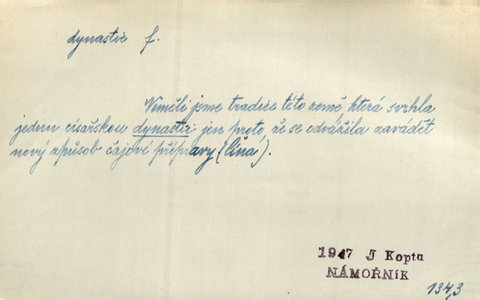 dynastie f.
Neměli jsme tradice této země, která svrhla
jednu císařskou dynastii jen proto, že se odvážila zavádět
nový způsob čajové přípravy (Čína).
1947 J Kopta
NÁMOŘNÍK
1343